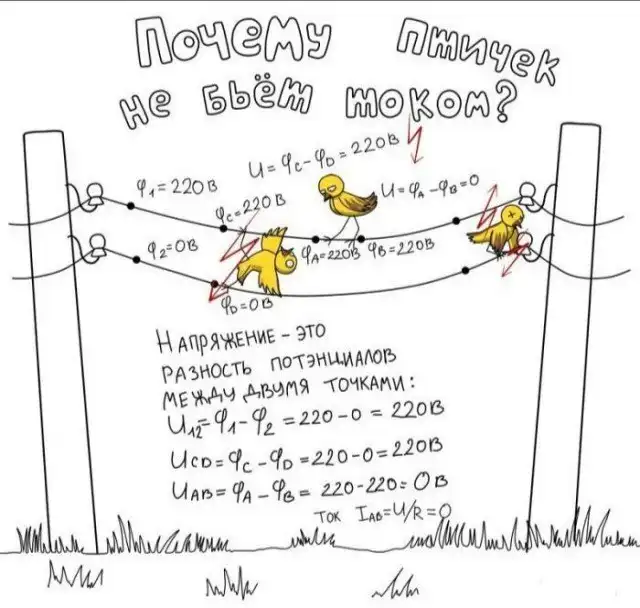 Почему птичек
не бьёт током?
U = φC - φD = 220В
φ1 = 220В
φC = 220В
U = φA - φB = 0
φ2 = 0В
φA = 220В
φB = 220В
φD = 0В
Напряжение - это
разность потэнциалов
между двумя точками:
U12 = φ1 - φ2 = 220 - 0 = 220В
UCD = φC - φD = 220 - 0 = 220В
UAB = φA - φB = 220 - 220 = 0В
ток IAB = U/R = 0